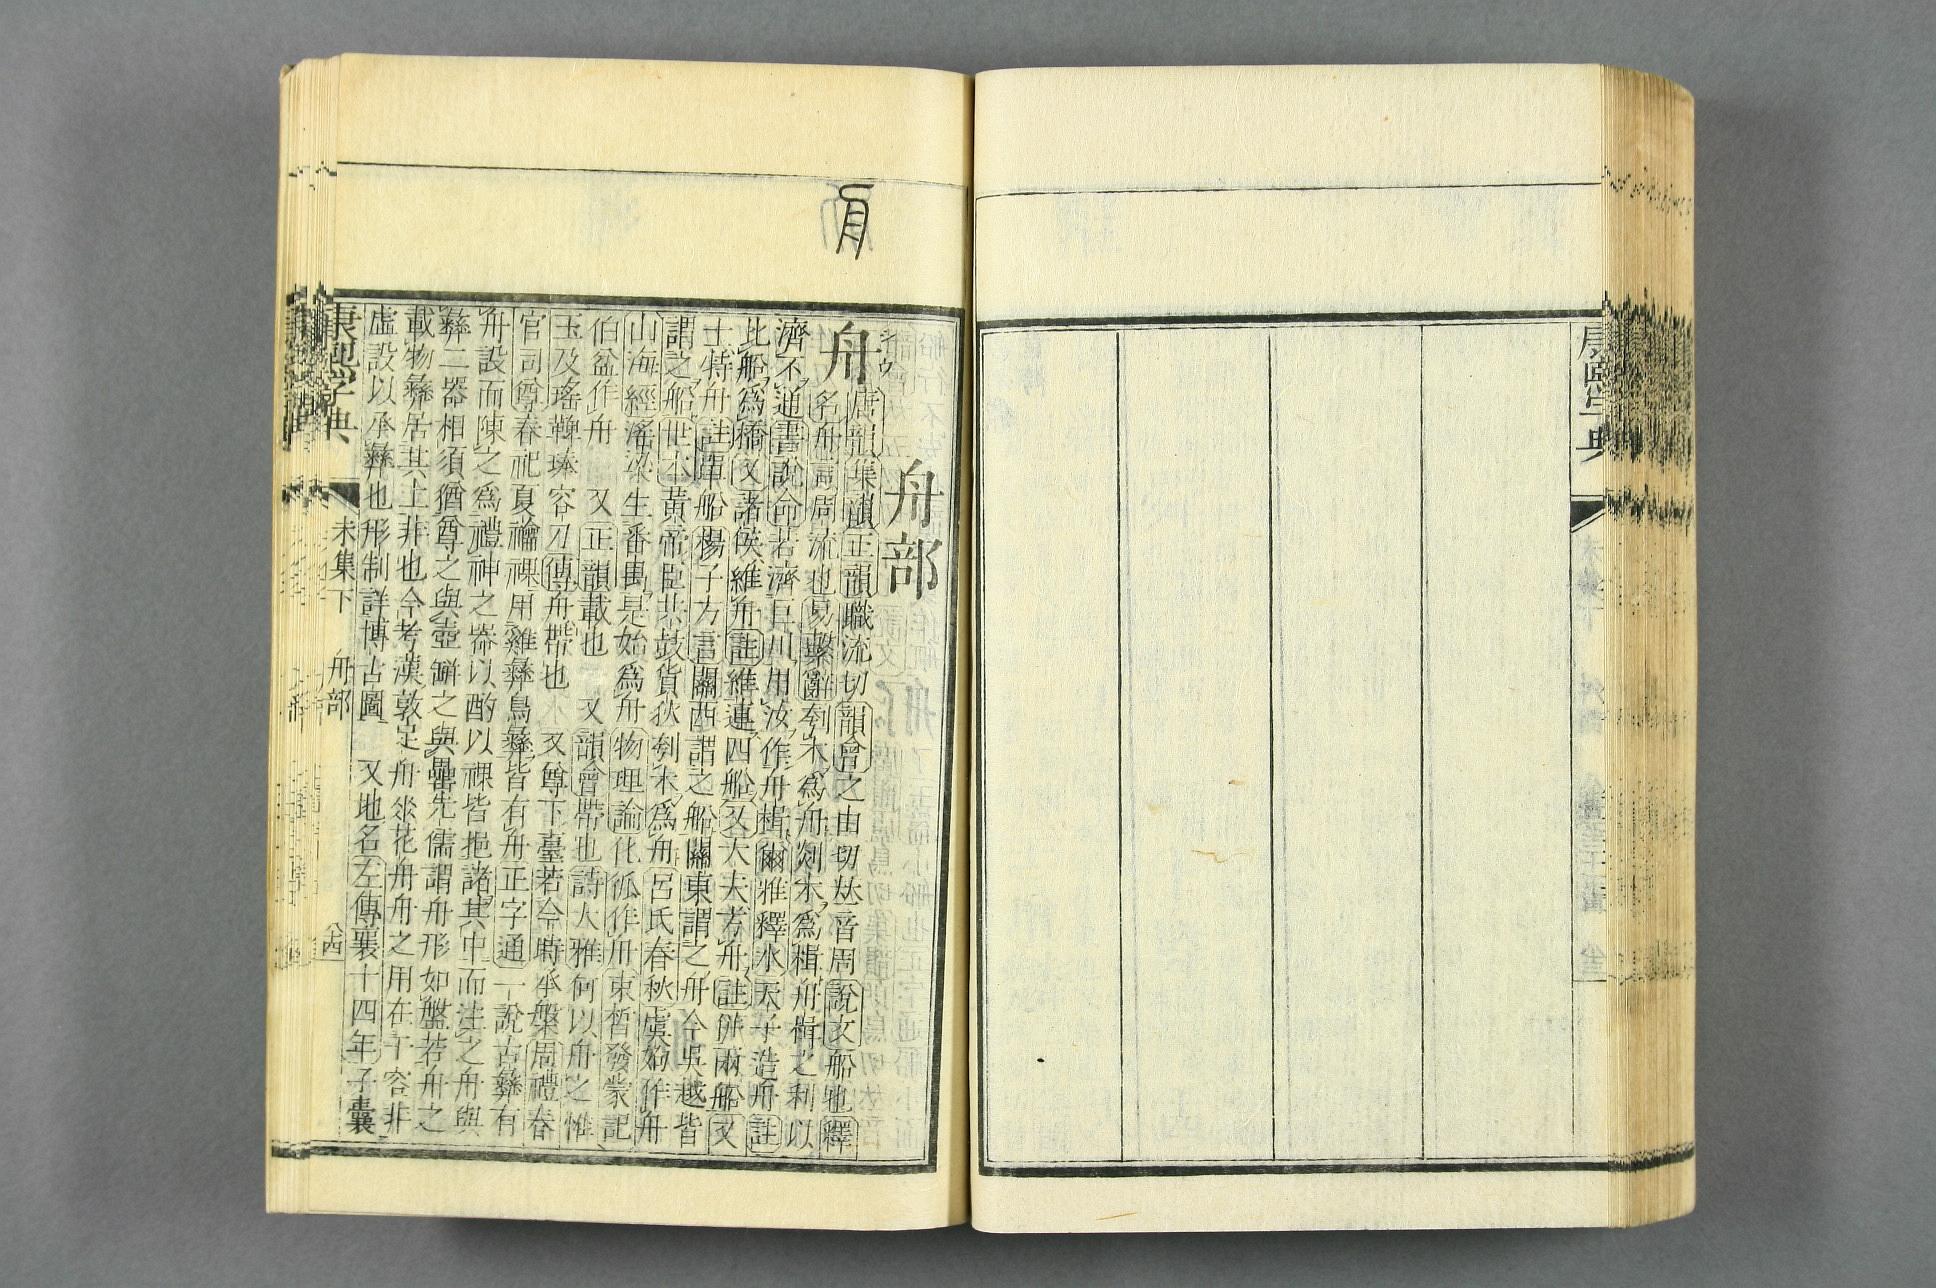 康熙字典
舟部
シウ
舟
唐韻集韻正韻職流切韻會之由切𠀤音周說文船也釋
名舟言周流也易繫辭刳木爲舟剡木爲楫舟楫之利以
濟不通書說命若濟巨川用汝作舟楫爾雅釋水天子造舟註
比船爲橋又諸侯維舟註維連四船又大夫方舟註倂兩船又
士特舟註單船楊子方言關西謂之船關東謂之舟今吳越皆
謂之船世本黃帝臣共鼓貨狄刳木爲舟呂氏春秋虞姁作舟
山海經淫梁生番禺是始爲舟物理論化狐作舟束皙發蒙記
伯益作舟 又正韻載也 又韻會帶也詩大雅何以舟之惟
玉及瑤鞞琫容刀傳舟帶也 又尊下臺若今時承槃周禮春
官司尊彝春祀夏禴祼用雞彝鳥彝皆有舟正字通一說古彝有
舟設而陳之爲禮神之器以酌以祼皆挹諸其中而注之舟與
彝二器相須猶尊之與壺缾之與罍先儒謂舟形如盤若舟之
載物彝居其上非也今考漢敦足舟花舟舟之用在于容非
虛設以承彝也形制詳博古圖 又地名左傳襄十四年子囊
康熙字典 未集下 舟部